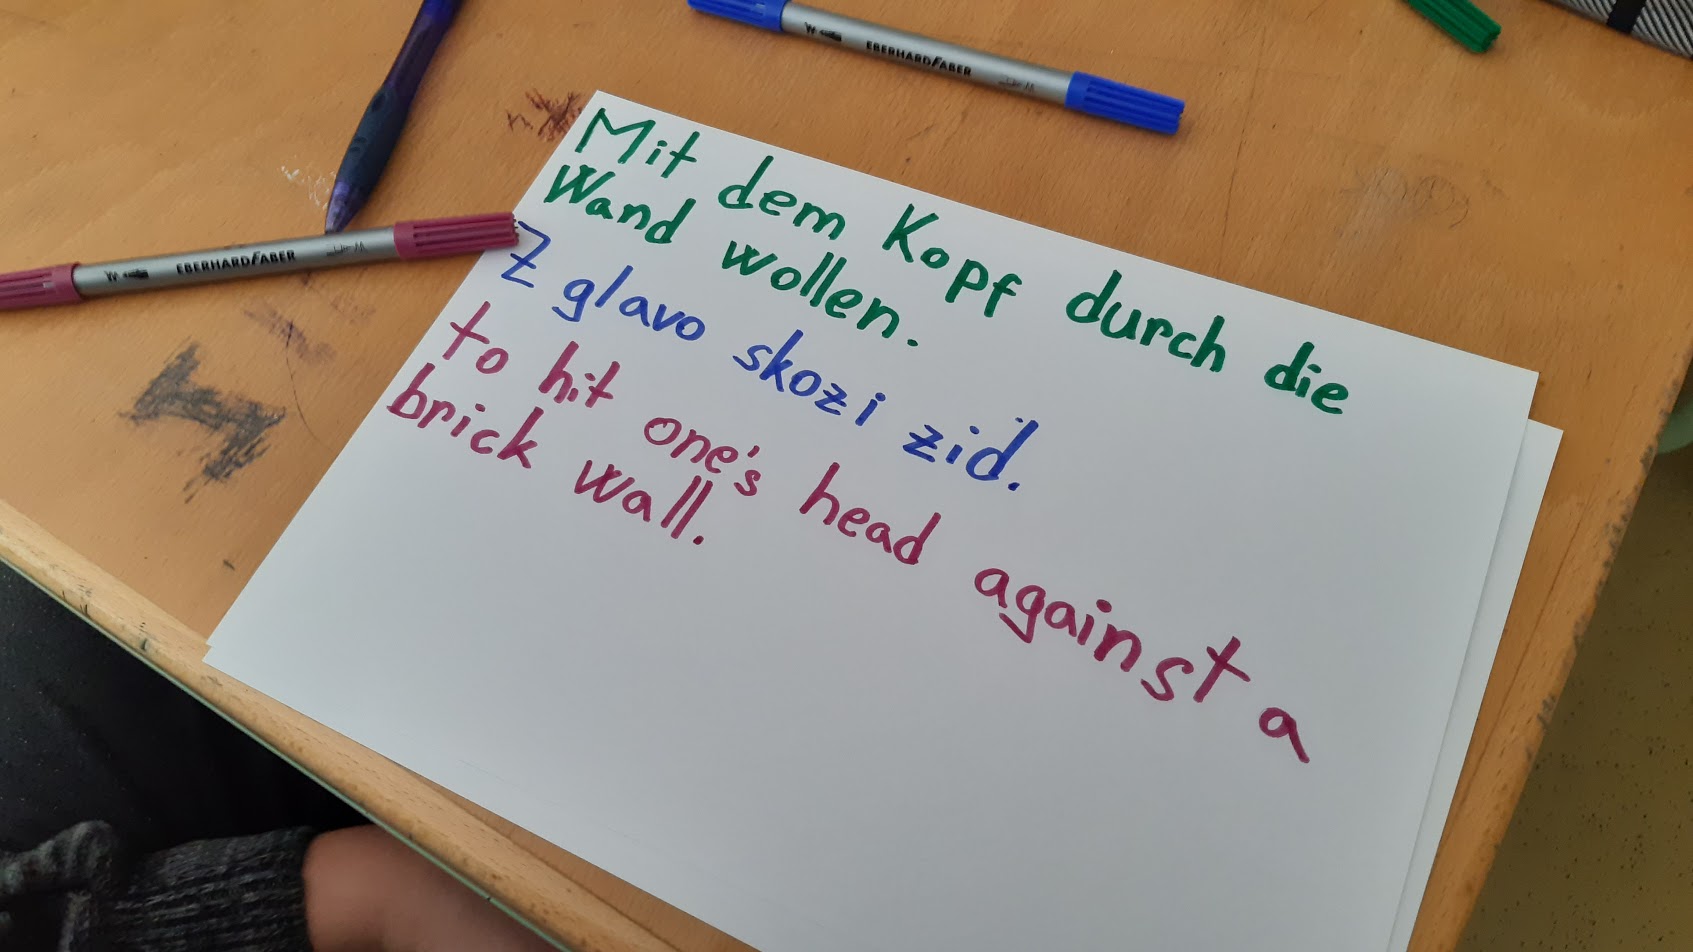 Mit dem Kopf durch die
Wand wollen.
Z glavo skozi zid.
to hit one's head against a
brick wall.
EBERHARDFABER
EBERHARDFABER